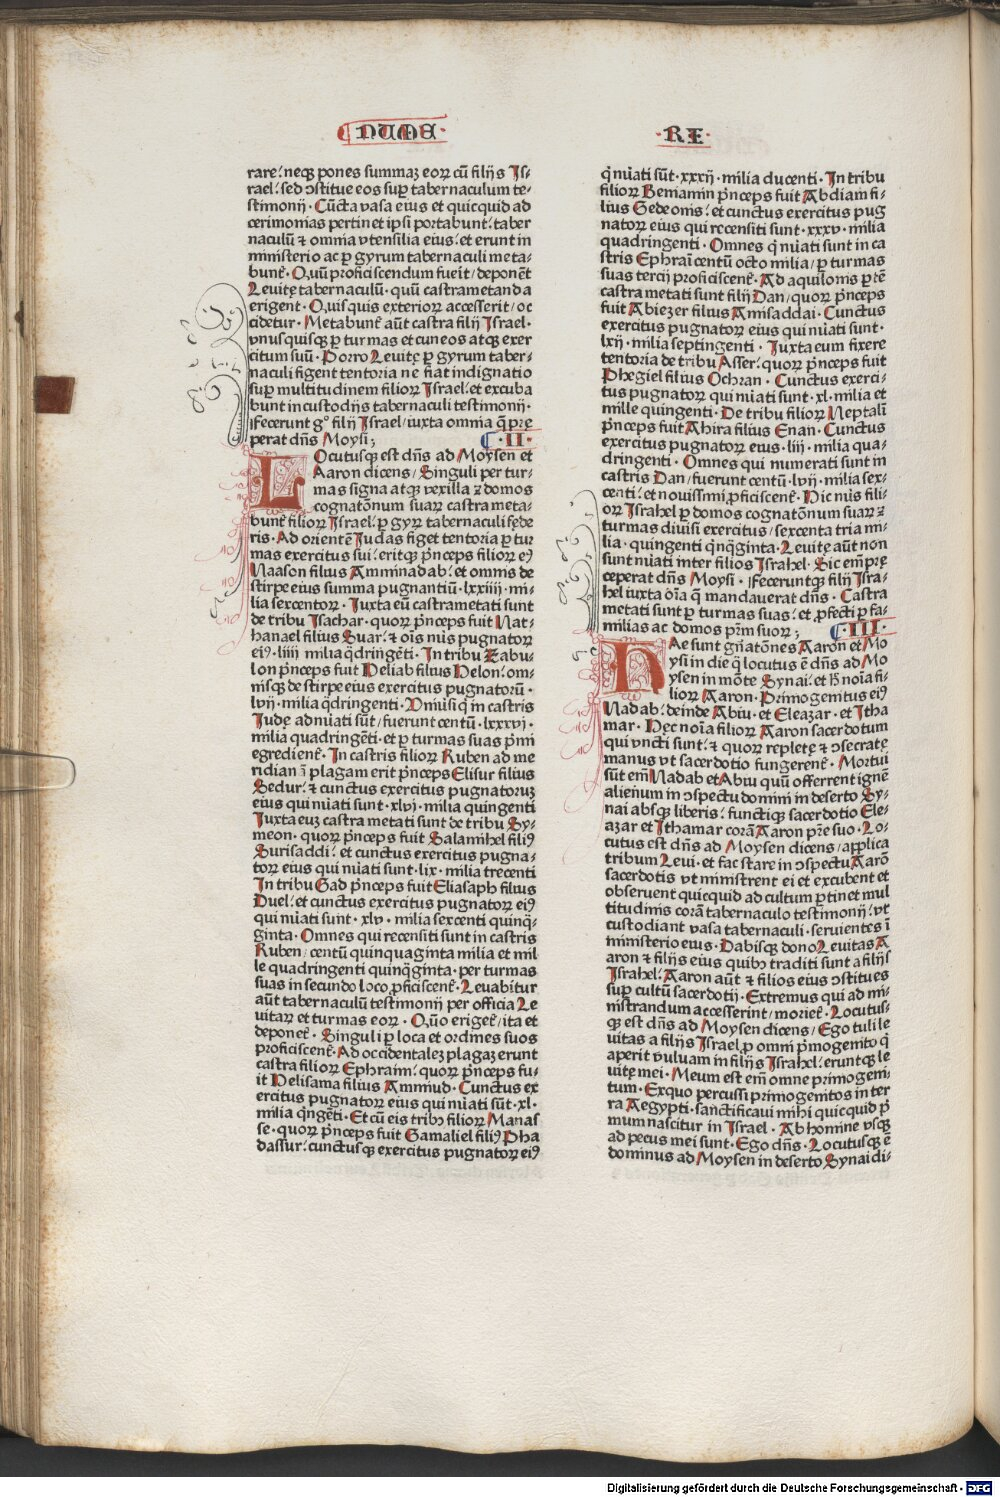 NUME
RI
rare: neqȝ pones summaȝ eoꝝ cū filijs Is-
rael: sed ↄstitue eos sup tabernaculum te-
stimonij · Cūcta vasa eius et quicquid ad
cerimonias pertinet ipsi portabunt: taber
naculū ⁊ omnia vtensilia eius: et erunt in
ministerio ac ꝑ gyrum tabernaculi meta-
bunt̄ · Quū proficiscendum fuerit / deponēt
Leuitę tabernaculū · quū castrametanda
erigent · Quisquis exterioꝝ accesserit / oc
cidetur · Metabunt̄ aūt castra filij Israel ·
vnusquisqȝ ꝑ turmas et cuneos atqȝ exer
citum suū · Porro Leuitę ꝑ gyrum taber-
naculi figent tentoria ne fiat indignatio
sup multitudinem filioꝝ Israel: et excuba
bunt in custodijs tabernaculi testimonij ·
Fecerunt g° filij Israel / iuxta omnia q̄ pre
perat dn̄s Moysi;
· II ·
LOcutusqȝ est dn̄s ad Moysen et
Aaron dicens / Singuli per tur-
mas signa atqȝ vexilla ⁊ domos
cognatōnum suaꝝ castra meta-
bunt̄ filioꝝ Israel: ꝑ gyꝝ tabernaculi fęde
ris · Ad orientē Iudas figet tentoria ꝑ tur
mas exercitus sui: eritqȝ pn̄ceps filioꝝ eiꝰ
Naason filius Amminadab: et omnis de
stirpe eius summa pugnantiū · lxxiiij · mi-
lia sexcentoꝝ · Iuxta eū castrametati sunt
de tribu Isachar · quoꝝ pn̄ceps fuit Nat-
hanael filius Suar: ⁊ oīs nūs pugnatoꝝ
eiꝰ · liiij milia q̄dringēti · In tribu Zabu-
lon pn̄ceps fuit Heliab filius Helon: om-
nisqȝ de stirpe eius exercitus pugnatorū ·
lvij · milia q̄dringenti · Vniūsi q̄ in castris
Iudę adnūati sūt / fuerunt centū · lxxxvj ·
milia quadringēti · et ꝑ turmas suas pn̄mi
egredient̄ · In castris filioꝝ Ruben ad me
ridianā plagam erit pn̄ceps Elisur filius
Sedur: ⁊ cunctus exercitus pugnatoruȝ
eius qui nūati sunt · xlvj · milia quingenti
Iuxta euȝ castra metati sunt de tribu Sy-
meon · quoꝝ pn̄ceps fuit Salamihel filiꝰ
Surisaddi: et cunctus exercitus pugna-
toꝝ eius qui nūati sunt · lix · milia trecenti
In tribu Gad pn̄ceps fuit Eliasaph filius
Duel: et cunctus exercitus pugnatoꝝ eiꝰ
qui nūati sunt · xlv · milia sexcenti quinq̄-
ginta · Omnes qui recensiti sunt in castris
Ruben / centū quinquaginta milia et mil
le quadringenti quinq̄ginta · per turmas
suas in secundo loco ꝓficiscent̄ · Leuabitur
aūt tabernaculū testimonij per officia Le
vitaꝝ et turmas eoꝝ · Quō eriget̄ / ita et
deponet̄ · Singuli ꝑ loca et ordines suos
proficiscent̄ · Ad occidentaleȝ plagaȝ erunt
castra filioꝝ Ephraim: quoꝝ pn̄ceps fu-
it Helisama filius Ammiud · Cunctus ex
ercitus pugnatoꝝ eius qui nūati sūt · xl ·
milia q̄ngēti · Et cū eis tribꝰ filioꝝ Manas
se · quoꝝ pn̄ceps fuit Gamaliel filiꝰ Pha
dassur: cunctusqȝ exercitus pugnatoꝝ eiꝰ
q̄ nūati sūt · xxxij · milia ducenti · In tribu
filioꝝ Beniamin pn̄ceps fuit Abdiam fi-
lius Gedeonis: et cunctus exercitus pug
natoꝝ eius qui recensiti sunt · xxxv · milia
quadringenti · Omnes q̄ nūati sunt in ca
stris Ephraī centū octo milia / ꝑ turmas
suas tercij proficiscent̄ · Ad aquilonis ꝑtē
castra metati sunt filij Dan / quoꝝ pn̄ceps
fuit Abiezer filius Amisaddai · Cunctus
exercitus pugnatoꝝ eius qui nūati sunt ·
lxij · milia septingenti · Iuxta eum fixere
tentoria de tribu Asser: quoꝝ pn̄ceps fuit
Phegiel filius Ochran · Cunctus exerci-
tus pugnatoꝝ qui nūati sunt · xl · milia et
mille quingenti · De tribu filioꝝ Neptalī
pn̄ceps fuit Ahira filius Enan · Cunctus
exercitus pugnatoꝝ eius · liij · milia qua-
dringenti · Omnes qui numerati sunt in
castris Dan / fuerunt centū · lvij · milia sex-
centi: et nouissimi ꝓficiscent̄ · Hic nūs fili-
oꝝ Israhel ꝑ domos cognatōnum suaꝝ ⁊
turmas diuisi exercitus / sexcenta tria mi-
lia · quingenti q̄nq̄ginta · Leuitę aūt non
sunt nūati inter filios Israhel · Sic em̄ prę
ceperat dn̄s Moysi · Feceruntqȝ filij Isra-
hel iuxta ōīa q̄ mandauerat dn̄s · Castra
metati sunt ꝑ turmas suas: et ꝓfecti ꝑ fa-
milias ac domos pr̄m suoꝝ;
· III ·
HAe sunt gn̄atōnes Aaron et Mo
ysi in die q̄ locutus ē dn̄s ad Mo
ysen in mōte Synai: et hec noīa fi-
lioꝝ Aaron · Primogenitus eiꝰ
Nadab: deinde Abiu · et Eleazar · et Itha
mar · Hęc noīa filioꝝ Aaron sacerdotum
qui vncti sunt: ⁊ quoꝝ repletę ⁊ ↄsecratę
manus vt sacerdotio fungerent̄ · Mortui
sūt em̄ Nadab et Abiu quū offerrent ignē
alienum in ↄspectu domini in deserto Sy-
nai absqȝ liberis: functiqȝ sacerdotio Ele-
azar et Ithamar corā Aaron pr̄e suo · Lo-
cutus est dn̄s ad Moysen dicens / applica
tribum Leui · et fac stare in ↄspectu Aarō
sacerdotis vt ministrent ei et excubent et
obseruent quicquid ad cultum ꝑtinet mul
titudinis corā tabernaculo testimonij: vt
custodiant vasa tabernaculi · seruientes ī
ministerio eius · Dabisqȝ dono Leuitas A
aron ⁊ filijs eius quibꝰ traditi sunt a filijs
Israhel: Aaron aūt ⁊ filios eius ↄstitues
sup cultū sacerdotij · Extremus qui ad mi-
nistrandum accesserint / moriet̄ · Locutus-
qȝ est dn̄s ad Moysen dicens / Ego tuli le
vitas a filijs Israel ꝓ omni pr̄mogenito q̄
aperit vuluam in filijs Israhel: eruntqȝ le
vitę mei · Meum est em̄ omne primogeni
tum · Exquo percussi primogenitos in ter
ra Aegypti · sanctificaui mihi quicquid pr̄
mum nascitur in Israel · Ab homine vsqȝ
ad pecus mei sunt · Ego dn̄s · Locutusqȝ ē
dominus ad Moysen in deserto Synai di-
Digitalisierung gefördert durch die Deutsche Forschungsgemeinschaft - DFG